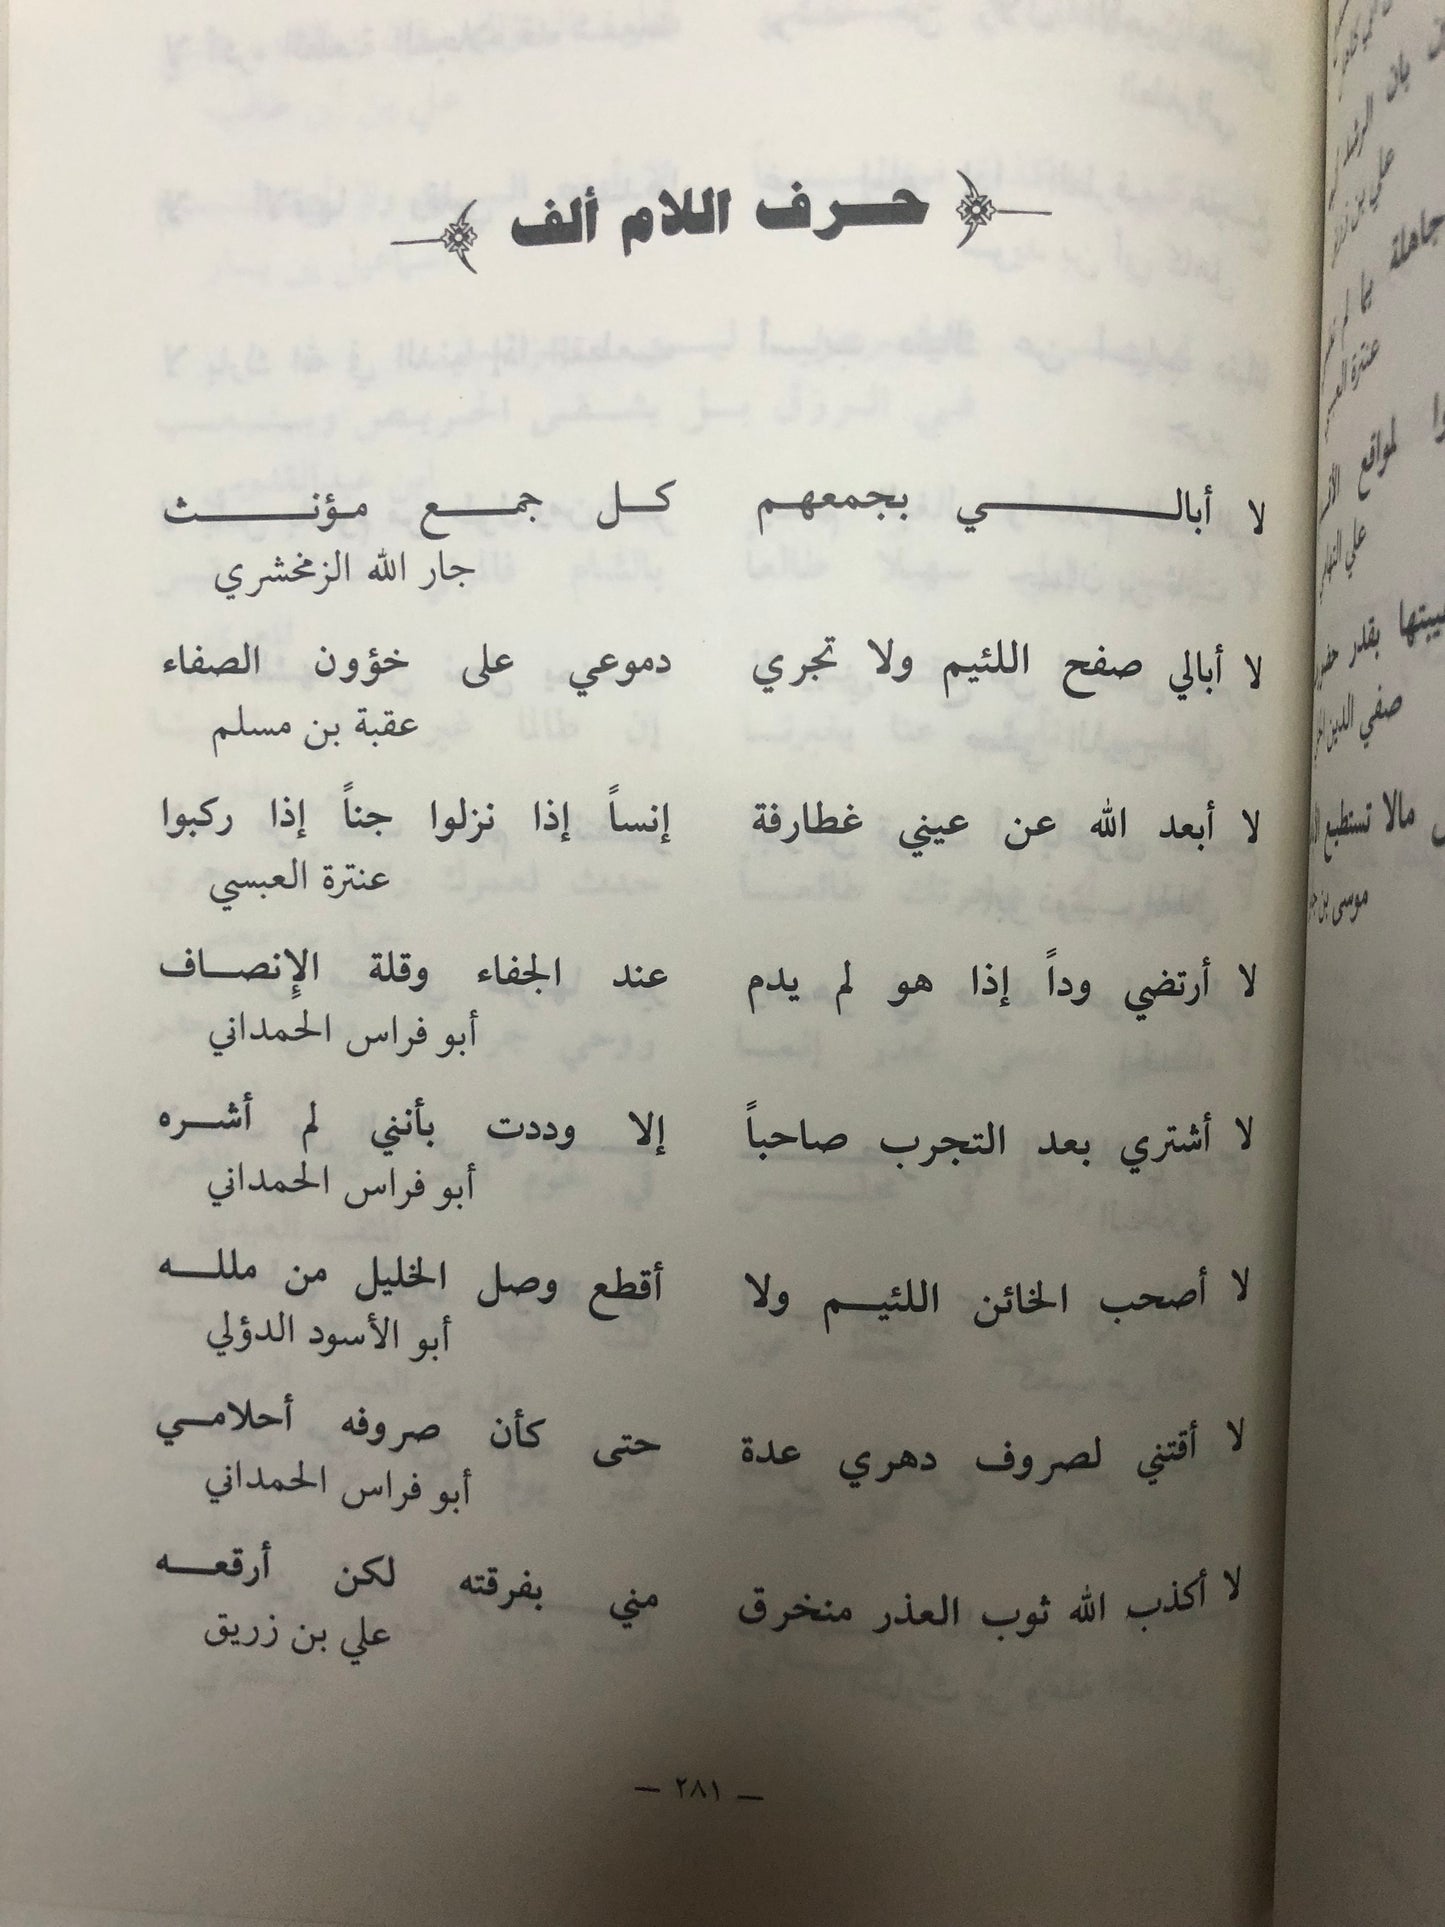 حرف اللام ألف
لا أبالي بجمعهم كل جمع مؤنث
جار الله الزمخشري
لا أبالي صفح اللئيم ولا تجري دموعي على خؤون الصفاء
عقبة بن مسلم
لا أبعد الله عن عيني غطارفة إنساً إذا نزلوا جناً إذا ركبوا
عنترة العبسي
لا أرتضي وداً إذا هو لم يدم عند الجفاء وقلة الإنصاف
أبو فراس الحمداني
لا أشتري بعد التجرب صاحباً إلا وددت بأنني لم أشره
أبو فراس الحمداني
لا أصحب الخائن اللئيم ولا أقطع وصل الخليل من ملله
أبو الأسود الدؤلي
لا أقتني لصروف دهري عدة حتى كأن صروفه أحلامي
أبو فراس الحمداني
لا أكذب الله ثوب العذر منخرق مني بفرقته لكن أرقعه
علي بن زريق
— ٢٨١ —
جاهلة
لمواقع
بقدر
صفي الدين
مالا تستطيع